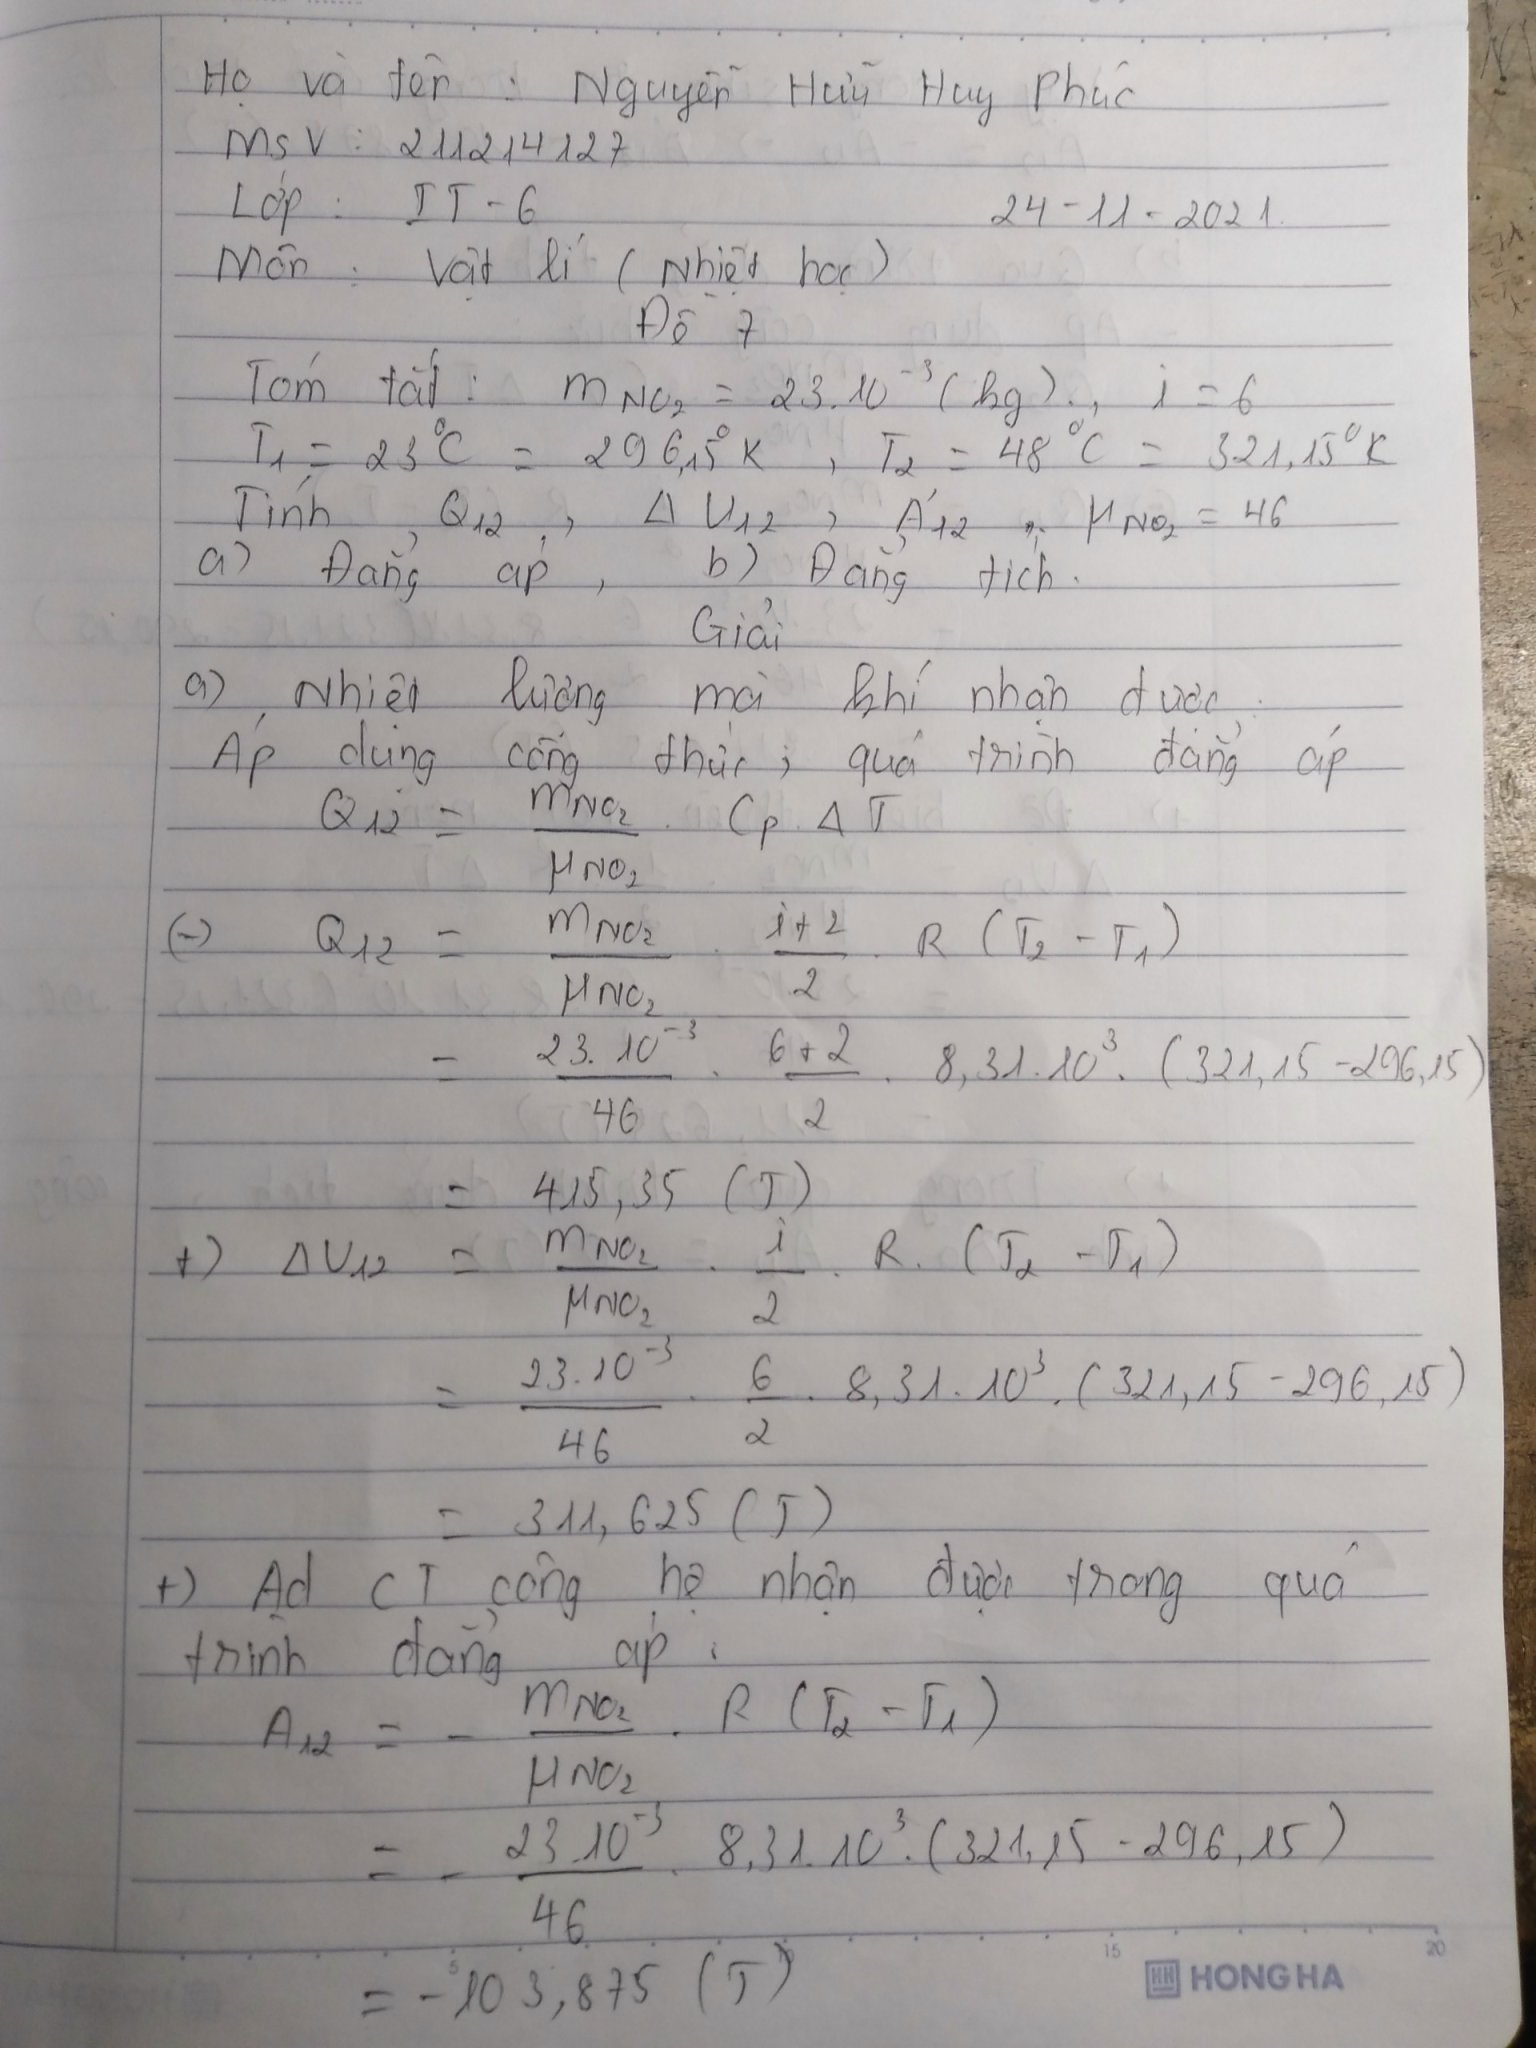 Họ và tên : Nguyễn Hữu Huy Phúc
MSV : 211214127
Lớp : IT - 6 24 - 11 - 2021.
Môn : Vật lí ( Nhiệt học )
Đề 7
Tóm tắt : m NO₂ = 23.10⁻³ (kg) ., i = 6
T₁ = 23°C = 296,15°K , T₂ = 48°C = 321,15°K
Tính , Q₁₂ , ΔU₁₂ , A₁₂ , μ NO₂ = 46
a) Đẳng áp , b) Đẳng tích .
Giải
a) Nhiệt lượng mà khí nhận được :
Áp dụng công thức ; quá trình đẳng áp
Q₁₂ = m NO₂ / μ NO₂ . Cp . ΔT
(-) Q₁₂ = m NO₂ / μ NO₂ . i+2 / 2 . R (T₂ - T₁)
= 23.10⁻³ / 46 . 6+2 / 2 . 8,31.10³ . (321,15 - 296,15)
= 415,35 (J)
+) ΔU₁₂ = m NO₂ / μ NO₂ . i / 2 . R . (T₂ - T₁)
= 23.10⁻³ / 46 . 6 / 2 . 8,31.10³ . (321,15 - 296,15)
= 311,625 (J)
+) Ad CT công hệ nhận được trong quá
trình đẳng áp :
A₁₂ = - m NO₂ / μ NO₂ . R (T₂ - T₁)
= - 23.10⁻³ / 46 . 8,31.10³ . (321,15 - 296,15)
= -103,875 (J)
5 10 15 20
HH HONG HA